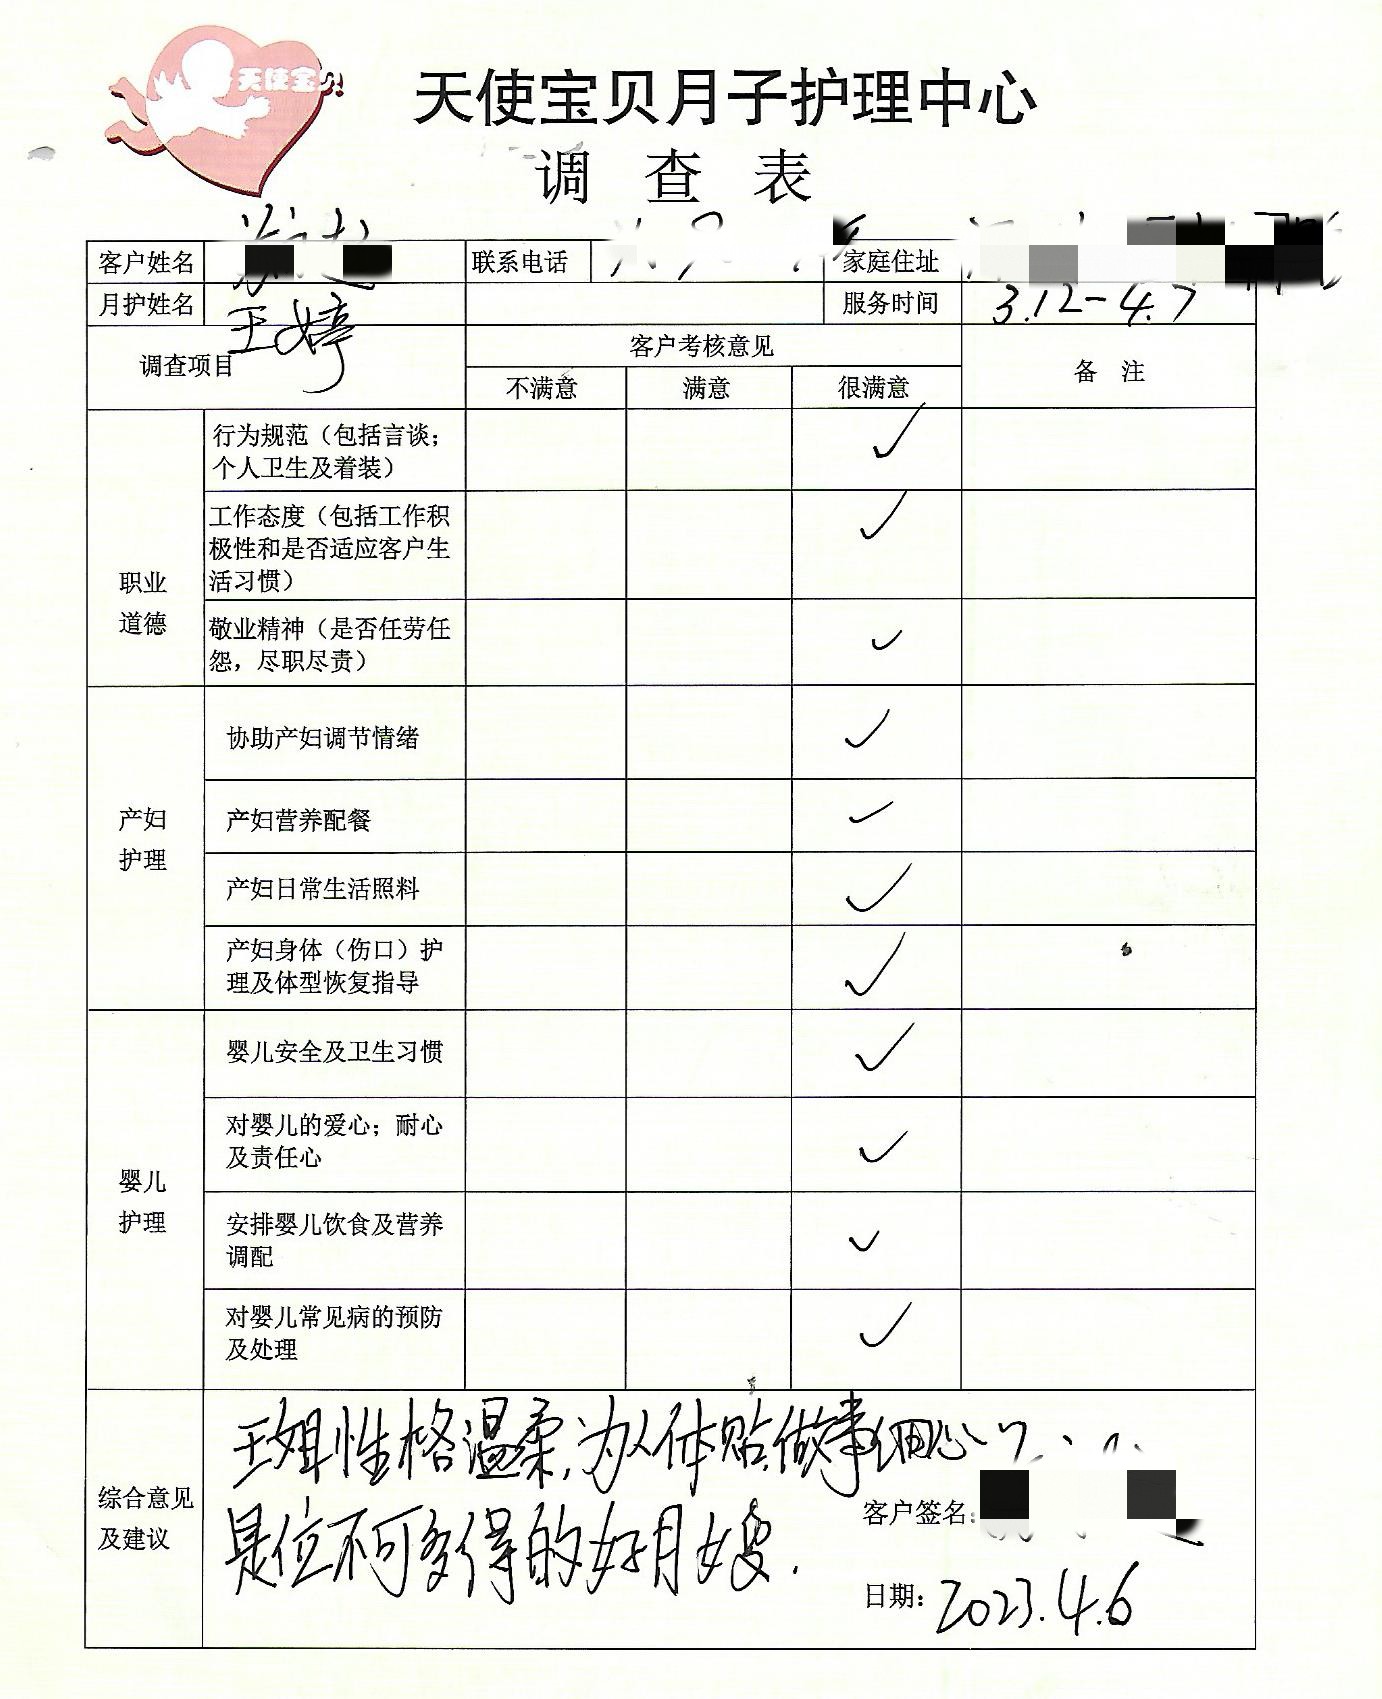 天使宝贝
天使宝贝月子护理中心
调 查 表
客户姓名 联系电话 家庭住址
月护姓名 王婷 服务时间 3.12-4.7
调查项目 客户考核意见 备 注
不满意 满意 很满意
职业
道德
行为规范（包括言谈；
个人卫生及着装） ✓
工作态度（包括工作积
极性和是否适应客户生
活习惯） ✓
敬业精神（是否任劳任
怨，尽职尽责） ✓
产妇
护理
协助产妇调节情绪 ✓
产妇营养配餐 ✓
产妇日常生活照料 ✓
产妇身体（伤口）护
理及体型恢复指导 ✓
婴儿
护理
婴儿安全及卫生习惯 ✓
对婴儿的爱心；耐心
及责任心 ✓
安排婴儿饮食及营养
调配 ✓
对婴儿常见病的预防
及处理 ✓
综合意见
及建议
王姐性格温柔,为人体贴,做事细心
是位不可多得的好月嫂.
客户签名:
日期: 2023.4.6